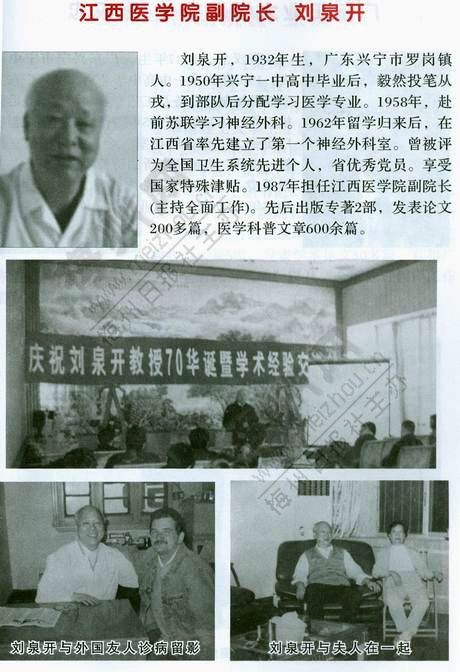 江西医学院副院长 刘泉开
刘泉开，1932年生，广东兴宁市罗岗镇
人。1950年兴宁一中高中毕业后，毅然投笔从
戎，到部队后分配学习医学专业。1958年，赴
前苏联学习神经外科。1962年留学归来后，在
江西省率先建立了第一个神经外科室。曾被评
为全国卫生系统先进个人，省优秀党员。享受
国家特殊津贴。1987年担任江西医学院副院长
(主持全面工作)。先后出版专著2部，发表论文
200多篇，医学科普文章600余篇。
庆祝刘泉开教授70华诞暨学术经验交
刘泉开与外国友人诊病留影
刘泉开与夫人在一起
www.meizhou.cn
梅州日报社主办